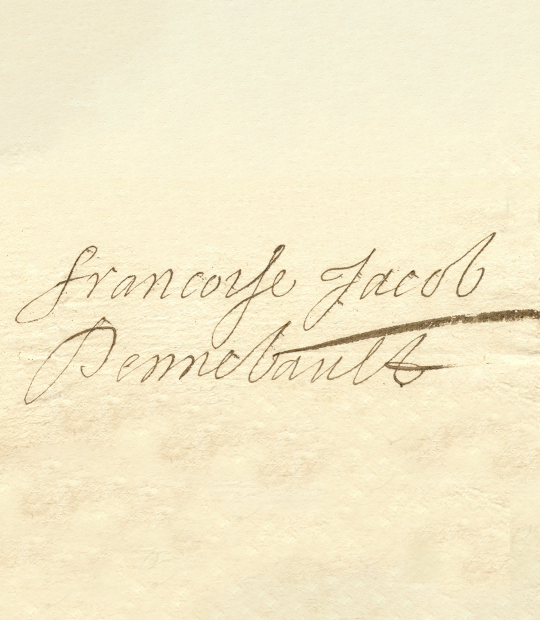 francoise Jacob
Dennebault